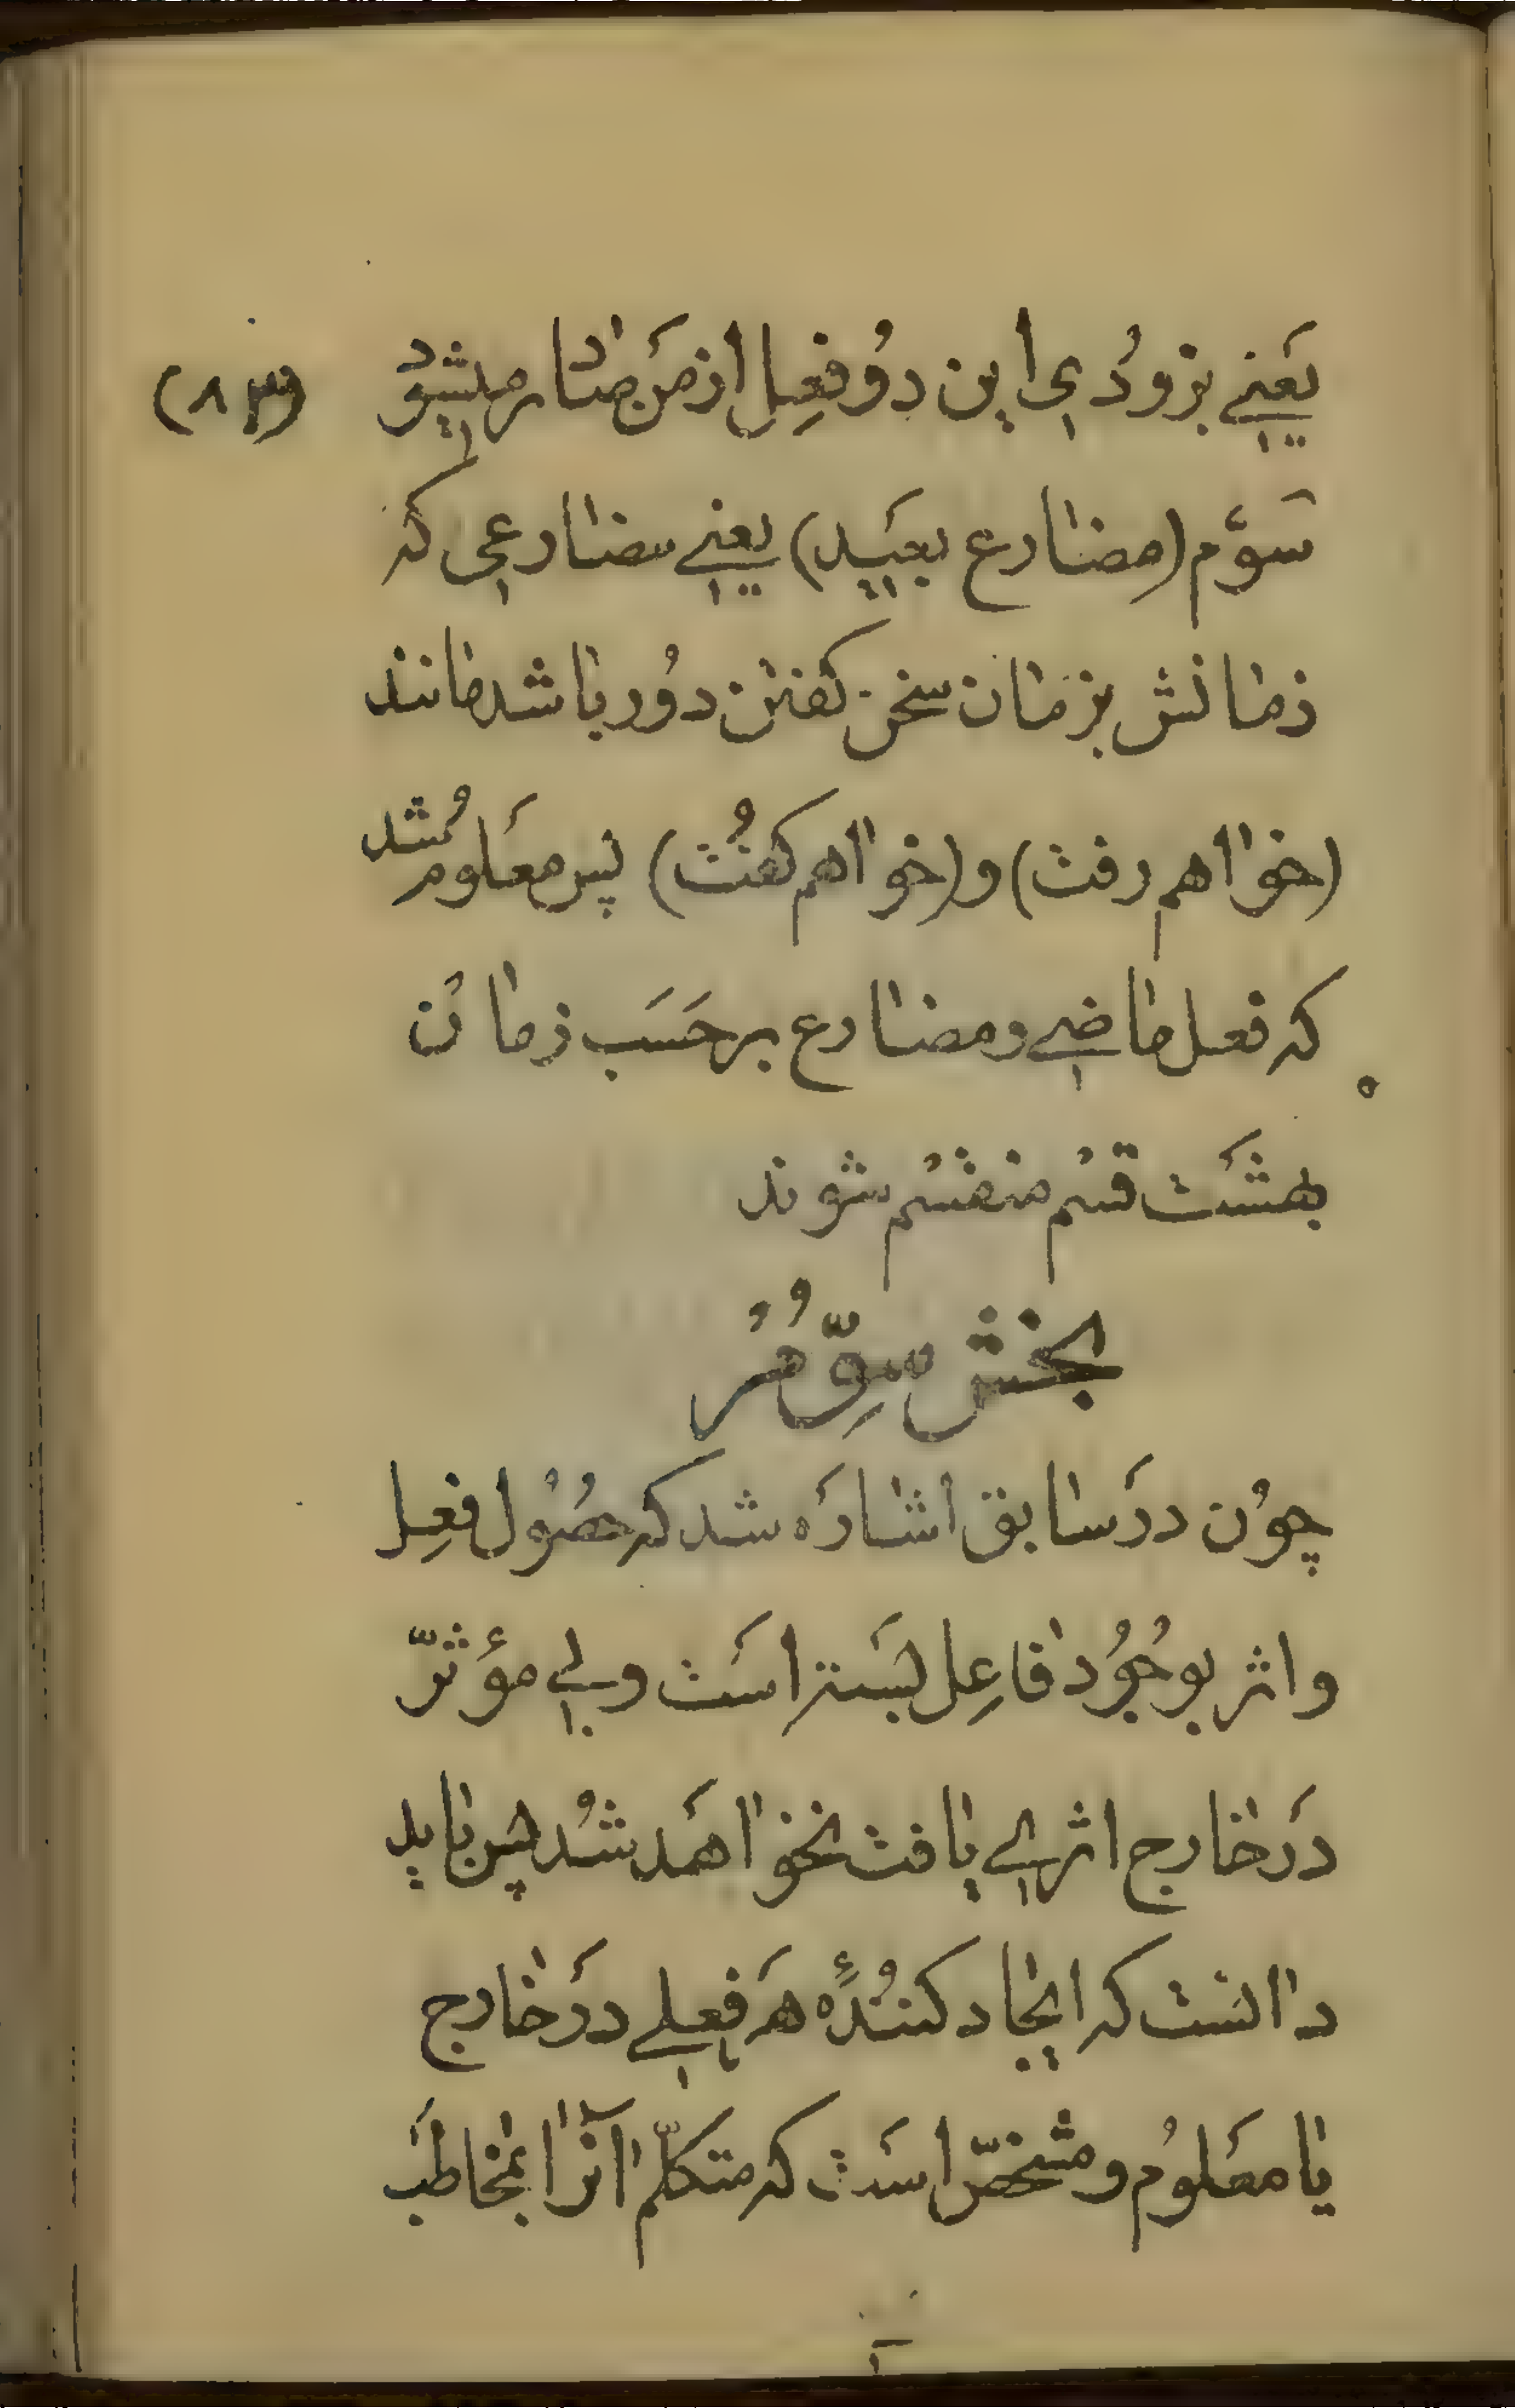 یَعنی بزودُی این دوُ فعِل از مَن صٰادر میشَود (۸۳)
سَوَّم (مضٰارع بعَید) یعنی مضٰارعی که
زمٰانش بزمٰان سخن گفتن دوُر بٰاشد مٰانند
(خوٰاهم رفت) و (خوٰاهم گفُت) پس معَلوم شُد
که فعل مٰاضی و مضٰارع برحَسَب زمٰان
بهشَت قسْم منقسْم شوند
بخش سِوّمُ
چوُن درَ سٰابق اشٰارَه شد که حصُوُل فعِل
و اثر بوجُوُد فٰاعِل بَسته اسَت و بی مؤثّر
دَر خٰارج اثری یٰافت نخوٰاهَد شُد پس بٰاید
دٰانست که ایجٰاد کنُندَهٔ هَر فعلی درَ خٰارج
یٰا معَلوُم و مشخصّ اسَت که متَکلّم آنرٰا بمخٰاطَب